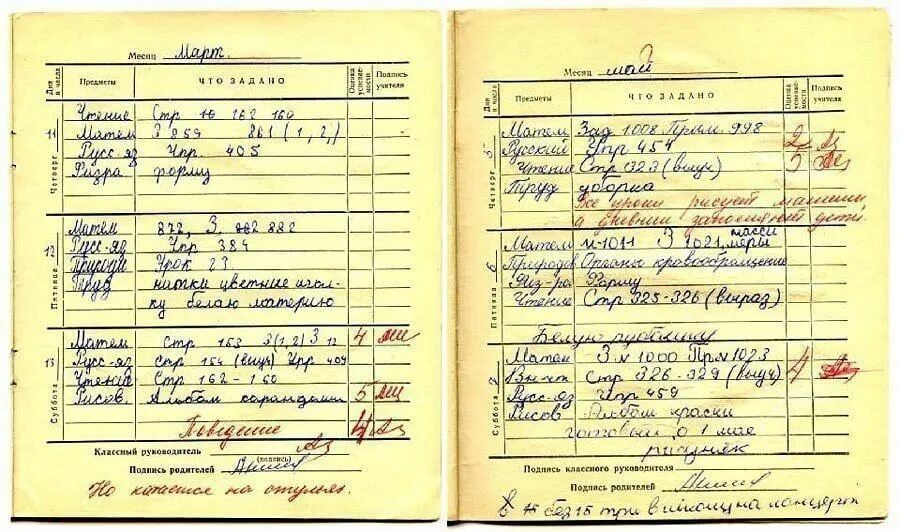 Месяц Март.
Дни и числа Предметы ЧТО ЗАДАНО Оценка успеваемости Подпись учителя
Чтение Стр 162 160
11 Четверг
Матем З 859 861 (1, 2,)
Русс-яз Упр. 405
Физра форму
12 Пятница
Матем 872, З. 882
Русс-яз Упр 384
Природ Урок 23
Труд нитки цветные игол-
ку белаю материю
13 Суббота
Матем Стр 153 3(1,2) З 12 4
Русс-яз Стр 154 (выуч) Упр 409
Чтение Стр 162-160
Рисов. Альбом карандаши 5
Поведение 4
Классный руководитель
(подпись)
Подпись родителей
Но катается на стульях.
Месяц май
Дни и числа Предметы ЧТО ЗАДАНО Оценка успеваемости Подпись учителя
5 Четверг
Матем Зад 1008 Прим. 998
Русский Упр 454 2
Чтение Стр 323 (выуч) 5
Труд уборка
Все уроки рисует машины,
а дневник заполняют дети.
6 Пятница
массы
Матем N-1011 З 1021, меры
Природов Органы кровообращения
Физ-ра Форму
Чтение Стр 325-326 (выраз)
Белую рубашку
7 Суббота
Матем З N 1000 Прм 1023
Вн-чт Стр 326-329 (выуч) 4
Русс-яз Упр 459
Рисов Альбом краски
готовый о 1 мае
рисунок
Подпись классного руководителя
Подпись родителей
без 15 три в